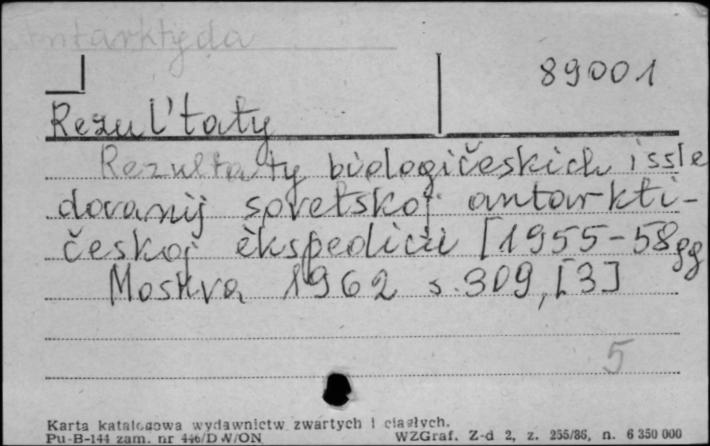 Antarktyda
89001
Rezul'taty
Rezultaty biologičeskich issle
dovanij sovetskoj antarkti-
českoj èkspedicii [1955-58gg
Moskva 1962 s.309,[3]
5
Karta katalogowa wydawnictw zwartych i ciągłych.
Pu-B-144 zam. nr 446/DW/ON WZGraf. Z-d 2, z. 255/86, n. 6 350 000